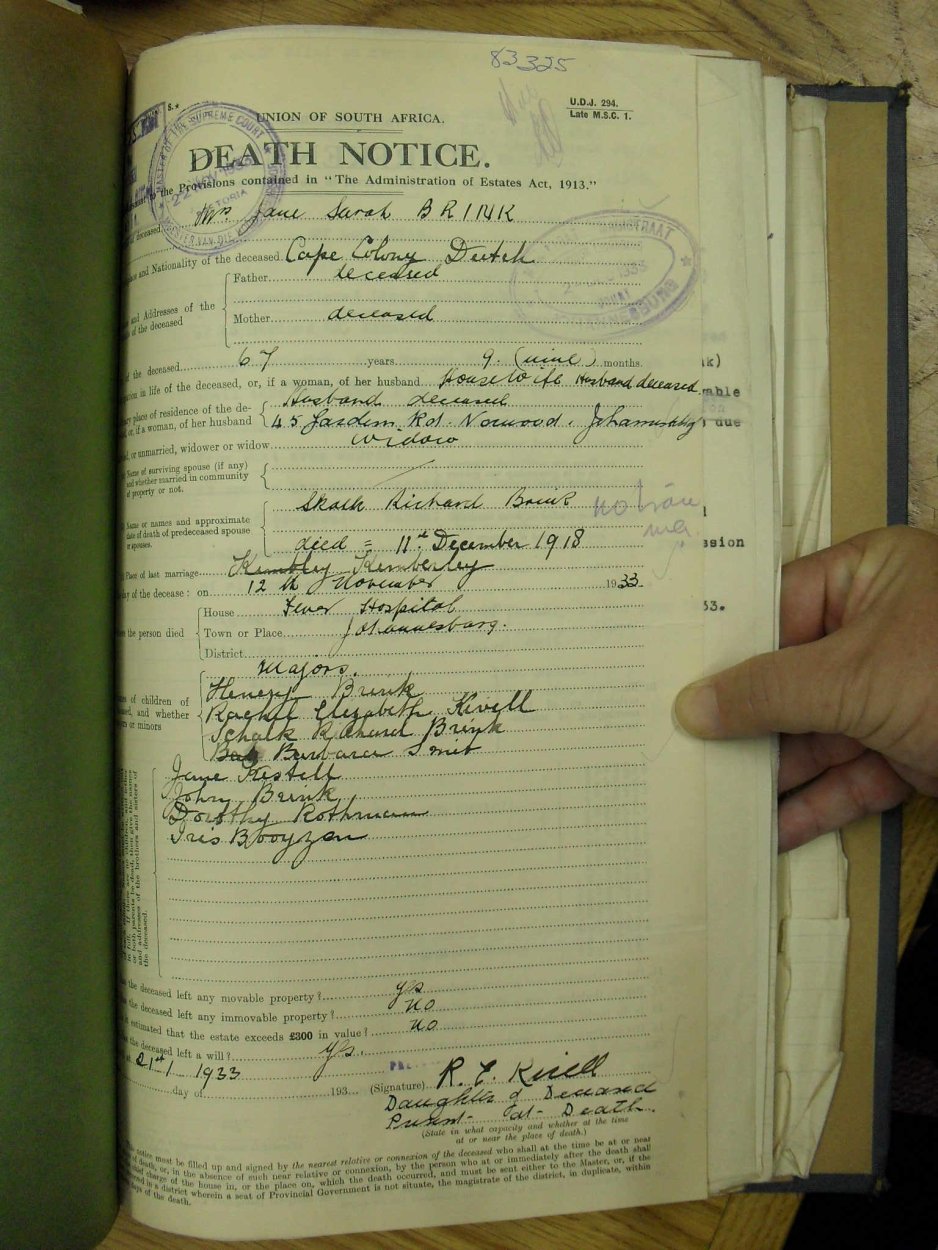 83325
U.D.J. 294.
Late M.S.C. 1.
UNION OF SOUTH AFRICA.
DEATH NOTICE.
the Provisions contained in "The Administration of Estates Act, 1913."
MASTER OF THE SUPREME COURT
PRETORIA
deceased Mrs. Jane Sarah BRINK
and Nationality of the deceased Cape Colony Dutch
and Addresses of the
of the deceased
Father deceased
Mother deceased
of the deceased 67 years 9. (nine) months.
in life of the deceased, or, if a woman, of her husband Housewife Husband deceased
place of residence of the de-
or, if a woman, of her husband
Husband deceased
45 Rd. Norwood. Johannesburg
or unmarried, widower or widow Widow
Name of surviving spouse (if any)
and whether married in community
of property or not.
Name or names and approximate
date of death of predeceased spouse
or spouses.
Skalk Richard Brink
died = 11th December 1918
Place of last marriage Kembley Kimberley
of the decease: on 12th November 1933
the person died
House Fever Hospital
Town or Place Johannesburg.
District
of children of
and whether
or minors
Majors.
Henery Brink
Rachel Elizabeth Kivell
Schalk Richard Brink
Barbara Smit
Jane Kestell
John Brink
Dorothy Rothmann
Iris Booyzen
the deceased left any movable property? yes
the deceased left any immovable property? no
estimated that the estate exceeds £300 in value? no
the deceased left a will? yes
21st 1933
day of 193
(Signature) R. E. Kivell
Daughter of Deceased
Present at Death.
(State in what capacity and whether at the time
at or near the place of death.)
notice must be filled up and signed by the nearest relative or connexion of the deceased who shall at the time be at or near
of death, or, in the absence of such near relative or connexion, by the person who at or immediately after the death shall
charge of the house in, or the place on, which the death occurred, and must be sent either to the Master, or, if the
in a district wherein a seat of Provincial Government is not situate, the magistrate of the district, in duplicate, within
days of the death.